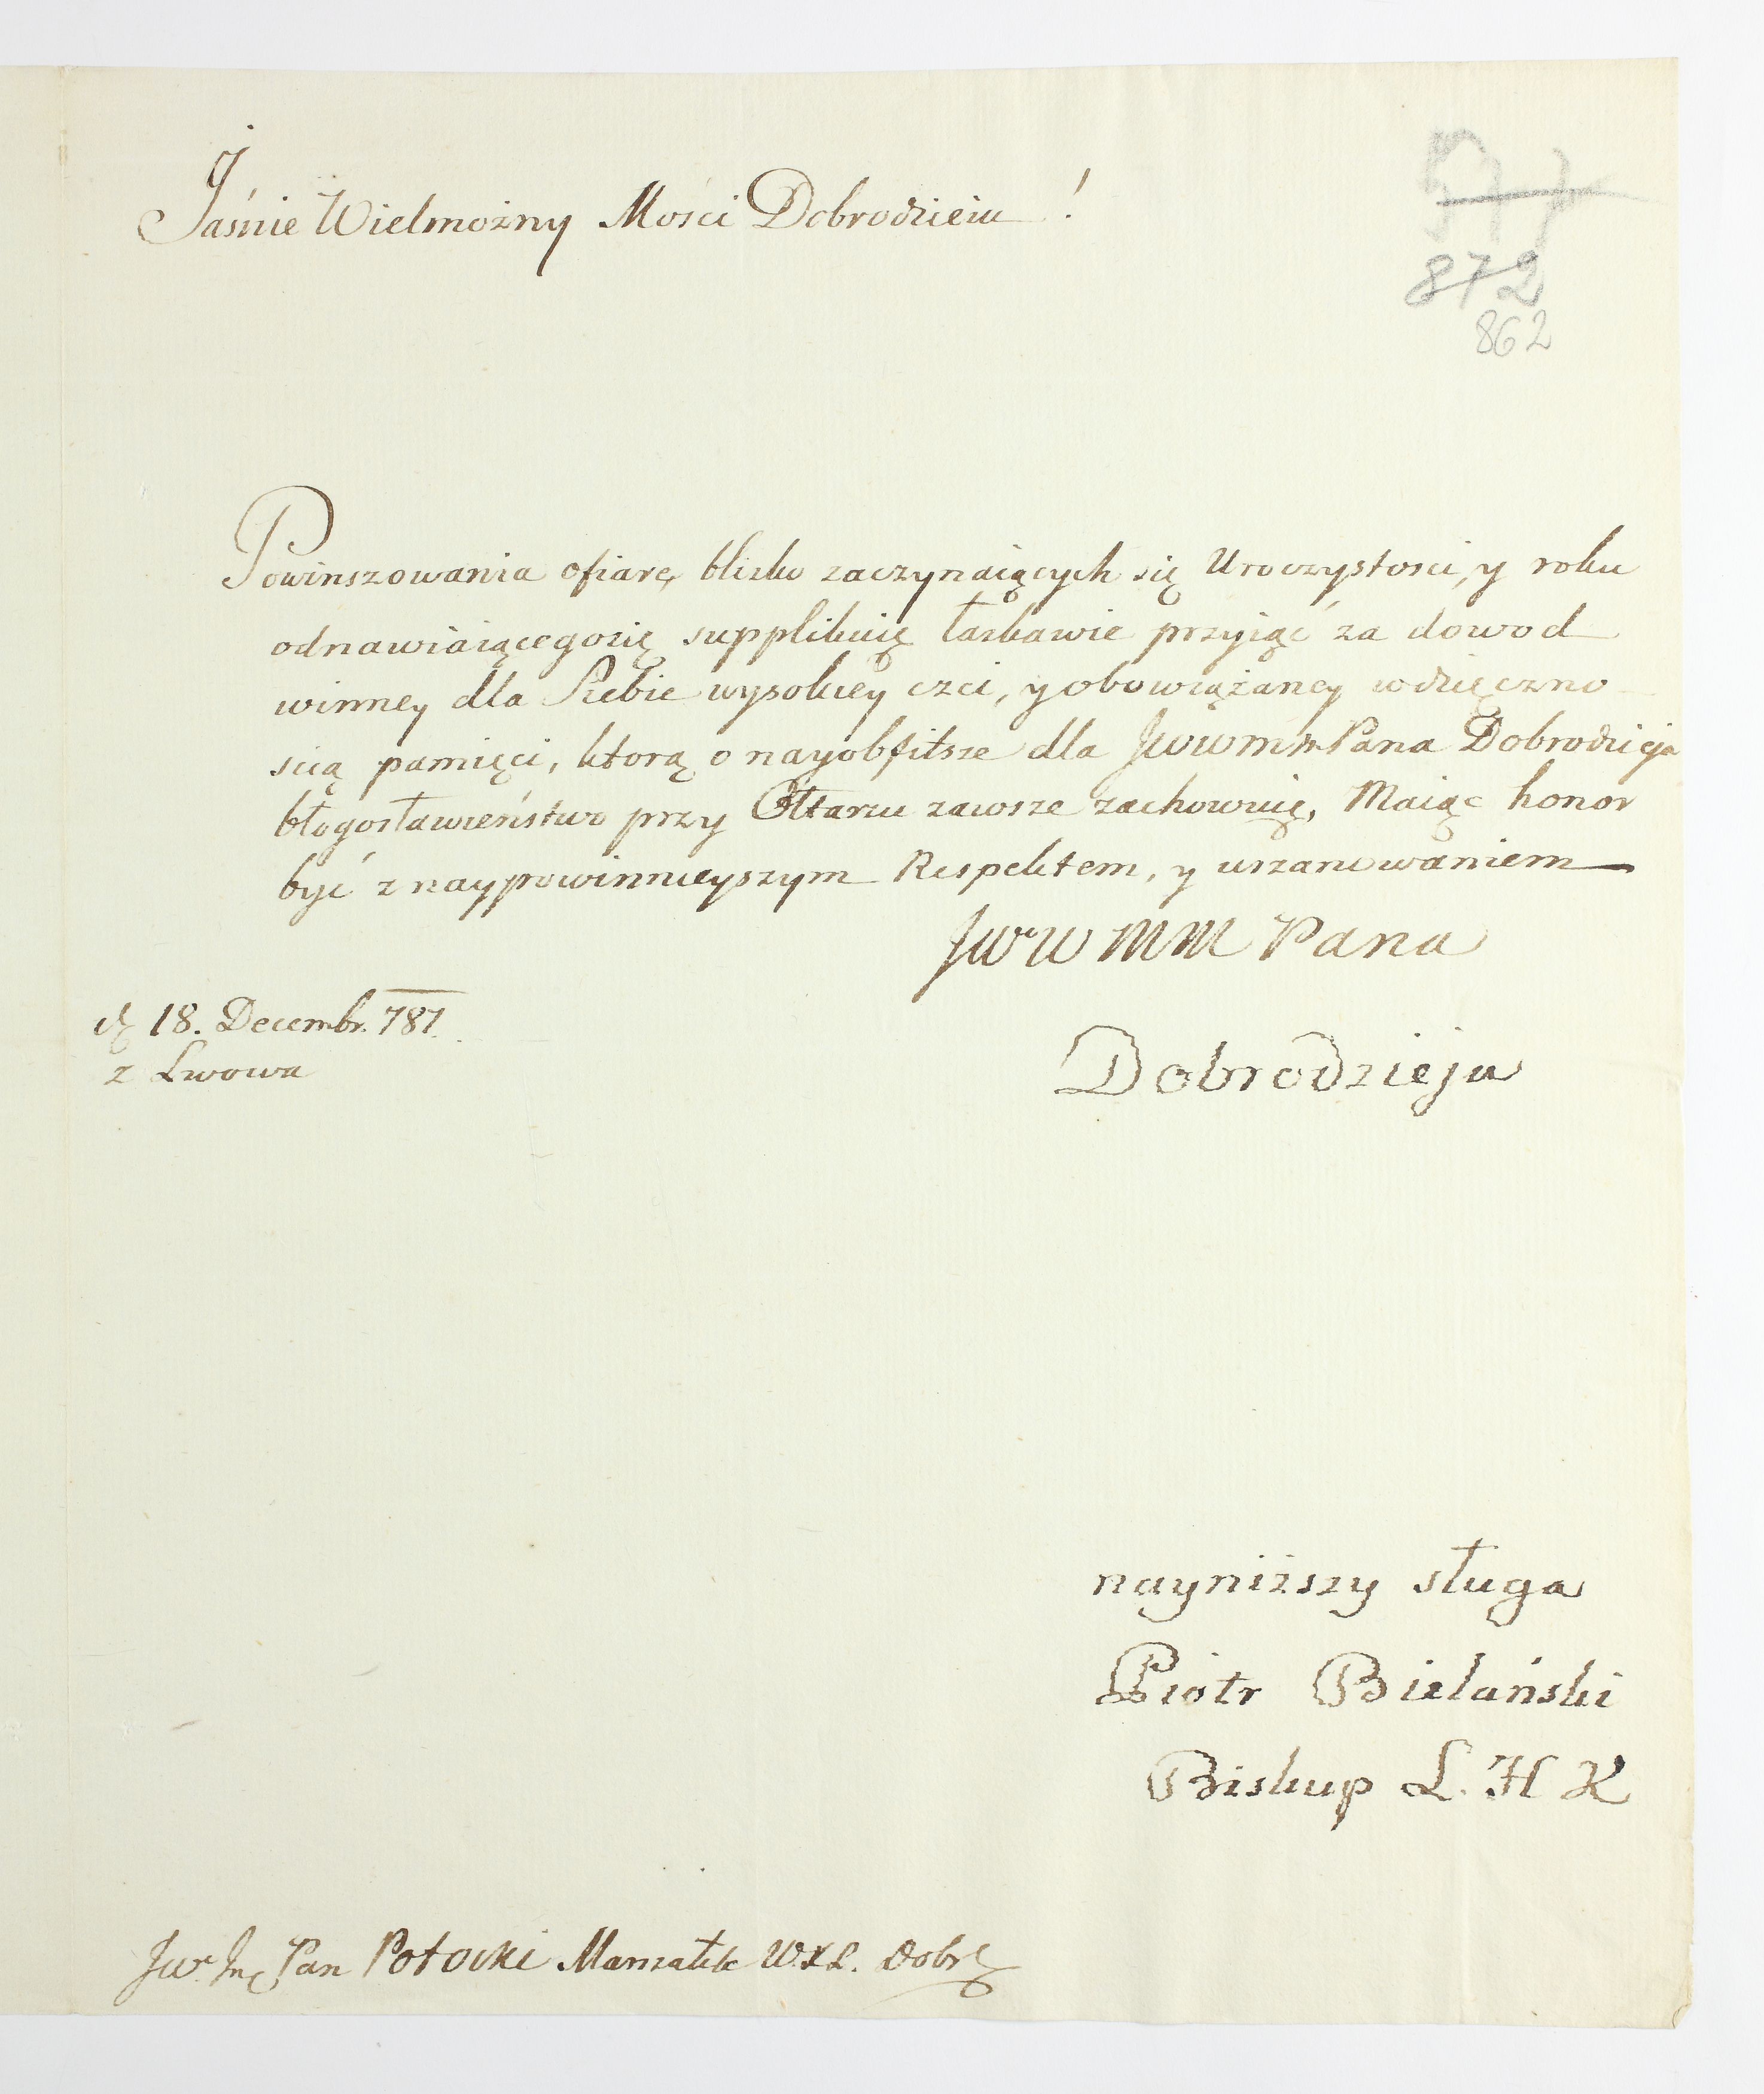 Jaśnie Wielmożny Mości Dobrodzieiu !
872
862
Powinszowania ofiarę blisko zaczynaiących się Uroczystosci, y roku
odnawiaiącegosię supplikuię łaskawie przyiąć za dowod
winney dla Siebie wysokiey czci, y obowiązaney wdzięczno
scią pamięci, ktorą o nayobfitsze dla JWWMM Pana Dobrodzieja
błogosławieństwo przy Ołtarzu zawsze zachowuię, Maiąc honor
być z naypowinnieyszym Respektem, y uszanowaniem
JWW MM Pana
18. Decembr. 787.
z Lwowa
Dobrodzieja
nayniższy sługa
Piotr Bielański
Biskup L. H K
JW. Jmć Pan Potocki Marszałek W.X.L. Dobr